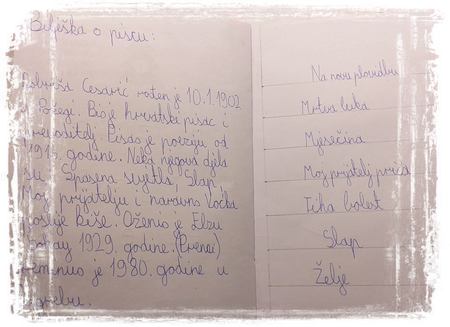 Bilješka o piscu:
Dobriša Cesarić rođen je 10.1.1902
Požegi. Bio je hrvatski pisac i
prevoditelj. Pisao je poeziju od
1915. godine. Neka njegova djela
su: Spasena svjetla, Slap,
Moj prijatelju i naravno Voćka
poslije kiše. Oženio je Elzu
1929. godine.
Preminuo je 1980. godine u
Zagrebu.
Na novu plovidbu
Mrtva luka
Mjesečina
Moj prijatelj priča
Tiha bolest
Slap
Želje